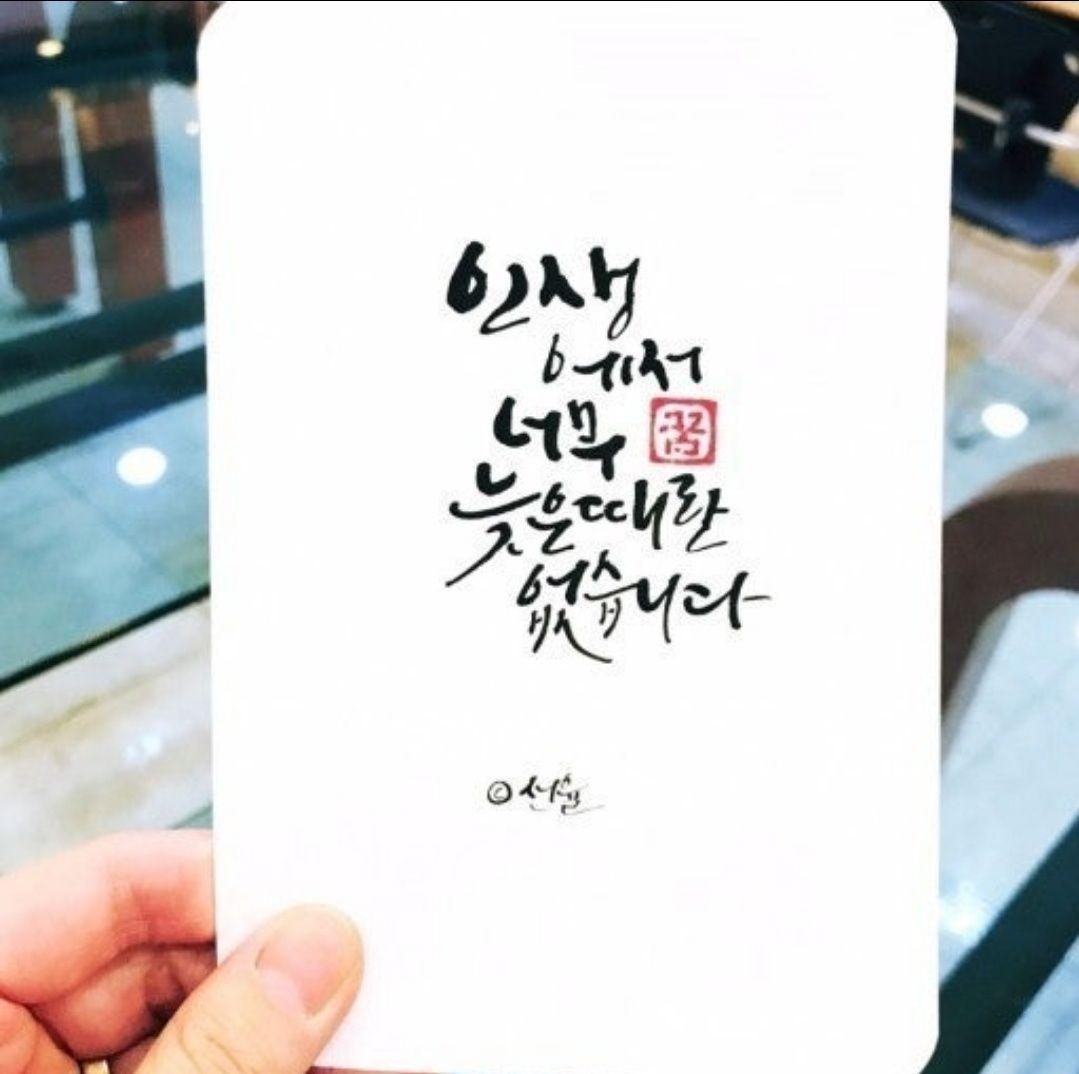 인생
에서
너무 꿈
늦은때란
없습니다
©